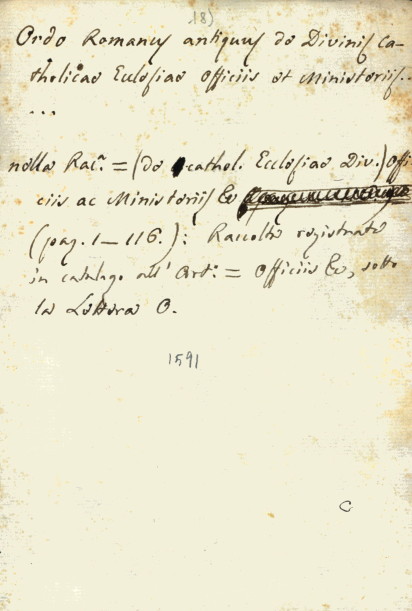 18)
Ordo Romanus antiquus de Divinis Ca-
tholicae Ecclesiae officiis et Ministeriis..
...
nella Rac.ª = (de cathol. Ecclesiae Div.) Offi
ciis ac Ministeriis &c
(pag. 1—116.): Raccolta registrata
in catalogo all' Art.º = Officiis &c, sotto
la Lettera O.
1591
C